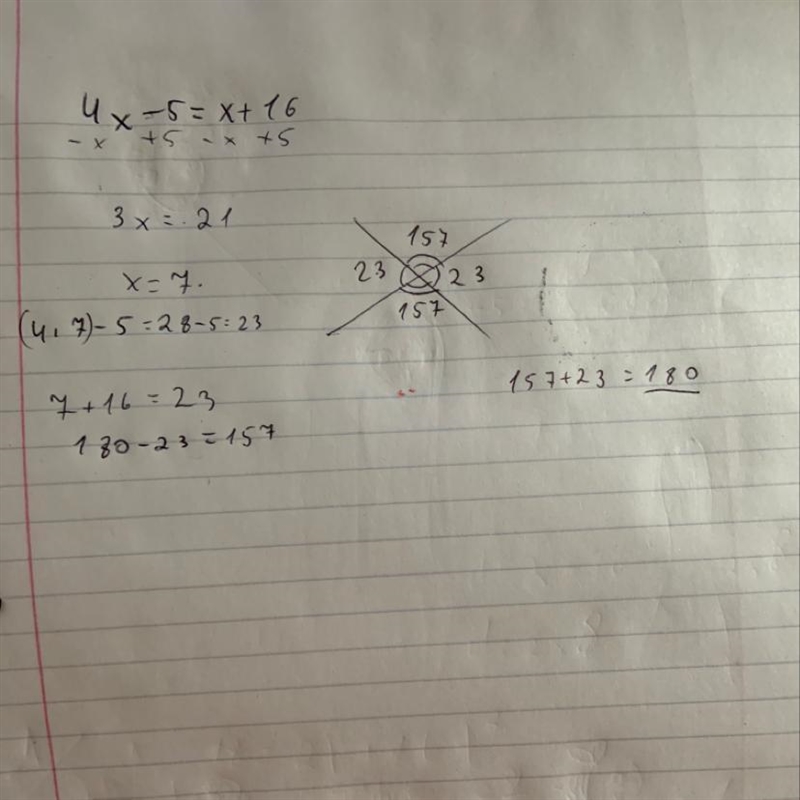 4x-5=x+16
-x +5 -x +5
3x=.21
x=7.
(4,7)-5=28-5:23
7+16=23
180-23=157
157
23 23
157
157+23=180